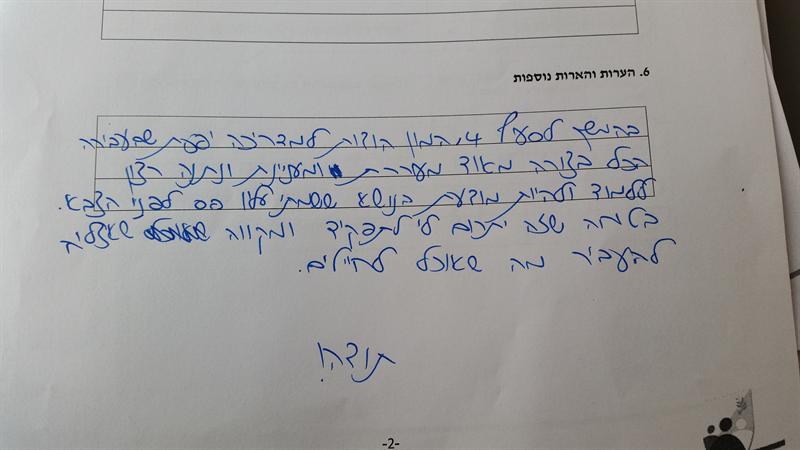 6. הערות והארות נוספות
בהמשך לסעיף 4, המון תודות למדריכה יפעת שהעבירה
הכל בצורה מאוד מעוררת ומעניינת ונתנה רצון
ללמוד ולהיות מודעת בנושא ששמתי עליו פס לפני הצבא.
בטוחה שזה יתרום לי לתפקיד ומקווה שאצליח
להעביר מה שאוכל לחיילים.
תודה!
-2-